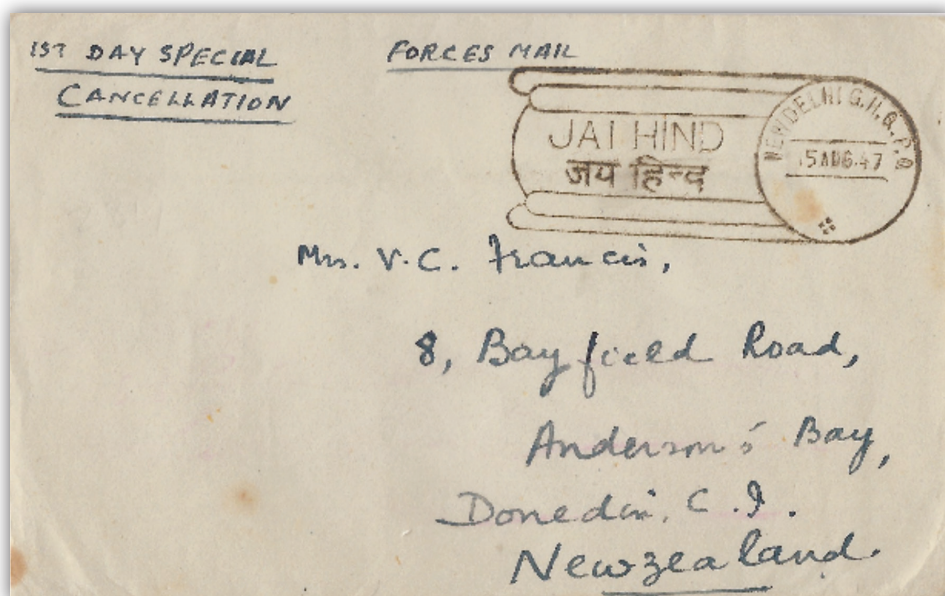 1ST DAY SPECIAL
CANCELLATION
FORCES MAIL
JAI HIND
जय हिन्द
NEW DELHI G.H.Q. P.O.
15 AUG. 47
Mrs. V. C. Francis,
8, Bayfield Road,
Anderson's Bay,
Donedin. C. I.
Newzealand.